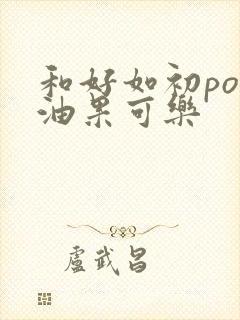 和好如初po
油果可樂
盧武昌